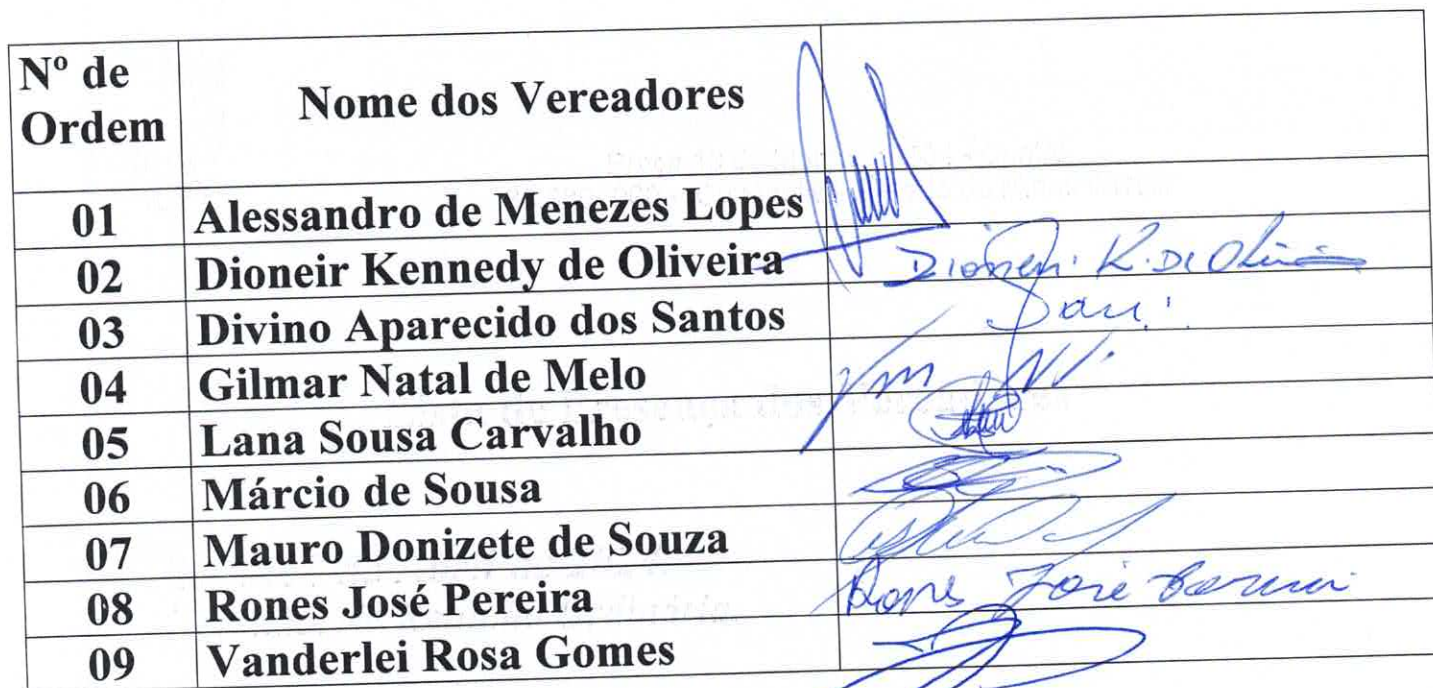 Nº de
Ordem
Nome dos Vereadores
01 Alessandro de Menezes Lopes
02 Dioneir Kennedy de Oliveira Dioneir K. De Oliveira
03 Divino Aparecido dos Santos
04 Gilmar Natal de Melo
05 Lana Sousa Carvalho
06 Márcio de Sousa
07 Mauro Donizete de Souza
08 Rones José Pereira Rones José Pereira
09 Vanderlei Rosa Gomes